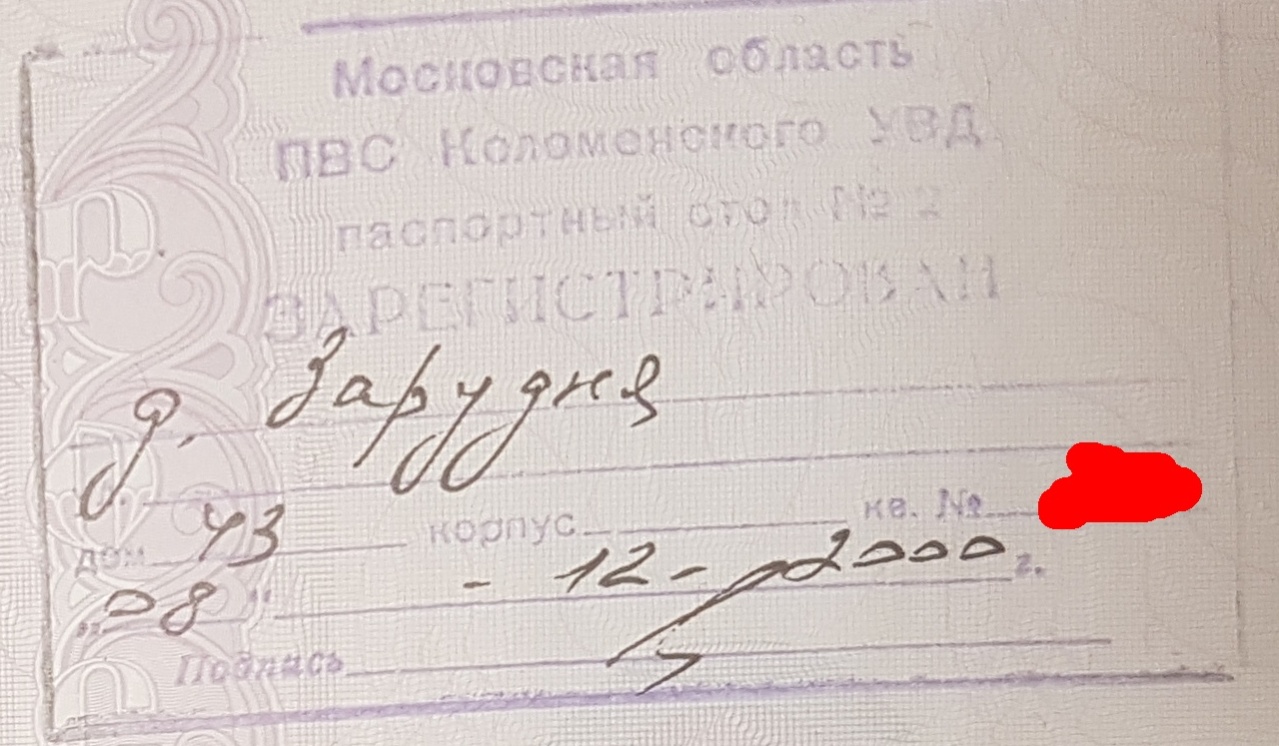 Московская область
ПВС Коломенского УВД
паспортный стол № 2
ЗАРЕГИСТРИРОВАН
д. Зарудня
дом 43 корпус кв. №
"08" - 12 - 2000 г.
Подпись